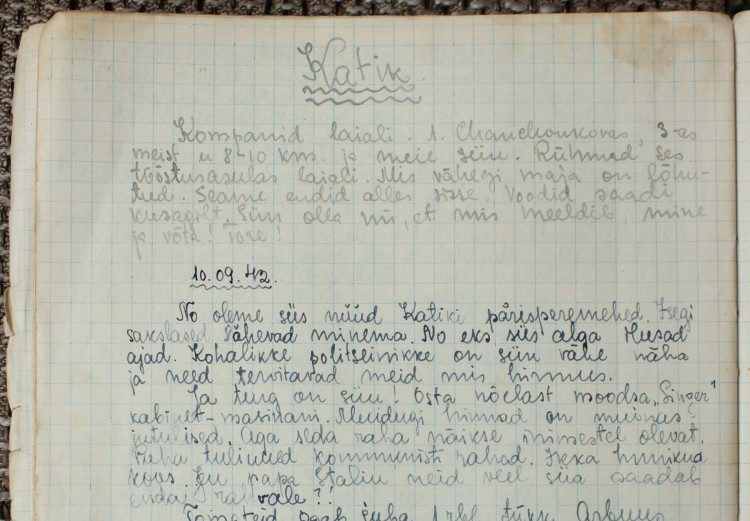 Katik.
Kompaniid laiali. 1. Chanchonkovos, 3-as
meist u 8-10 kms. ja meie siin. Rühmad ses
tööstusasulas laiali. Mis vähegi maja on lõhu-
tud. Seame endid alles sisse. Voodid saadi
kusagilt. Siin olla nii, et mis meeldib, mine
ja võta! Tore!
10.09.42.
No oleme siis nüüd Katiki pärisperemehed. Isegi
sakslased lähevad minema. No eks siis alga ilusad
ajad. Kohalikke politseinikke on siin vähe näha
ja need tervitavad meid mis hirmus.
Ja turg on siin! Osta nõelast moodsa „Singer"
kabinet-masinani. Muidugi hinnad on muinas-
jutulised. Aga seda raha näikse inimestel olevat.
Puha tulinud kommunisti rahad. Terve hunikud
koos. Ju papa Stalin neid veel siia saadab
endai vale?!
Tomateid saab juba 1 rbl. tükk. Arbuus